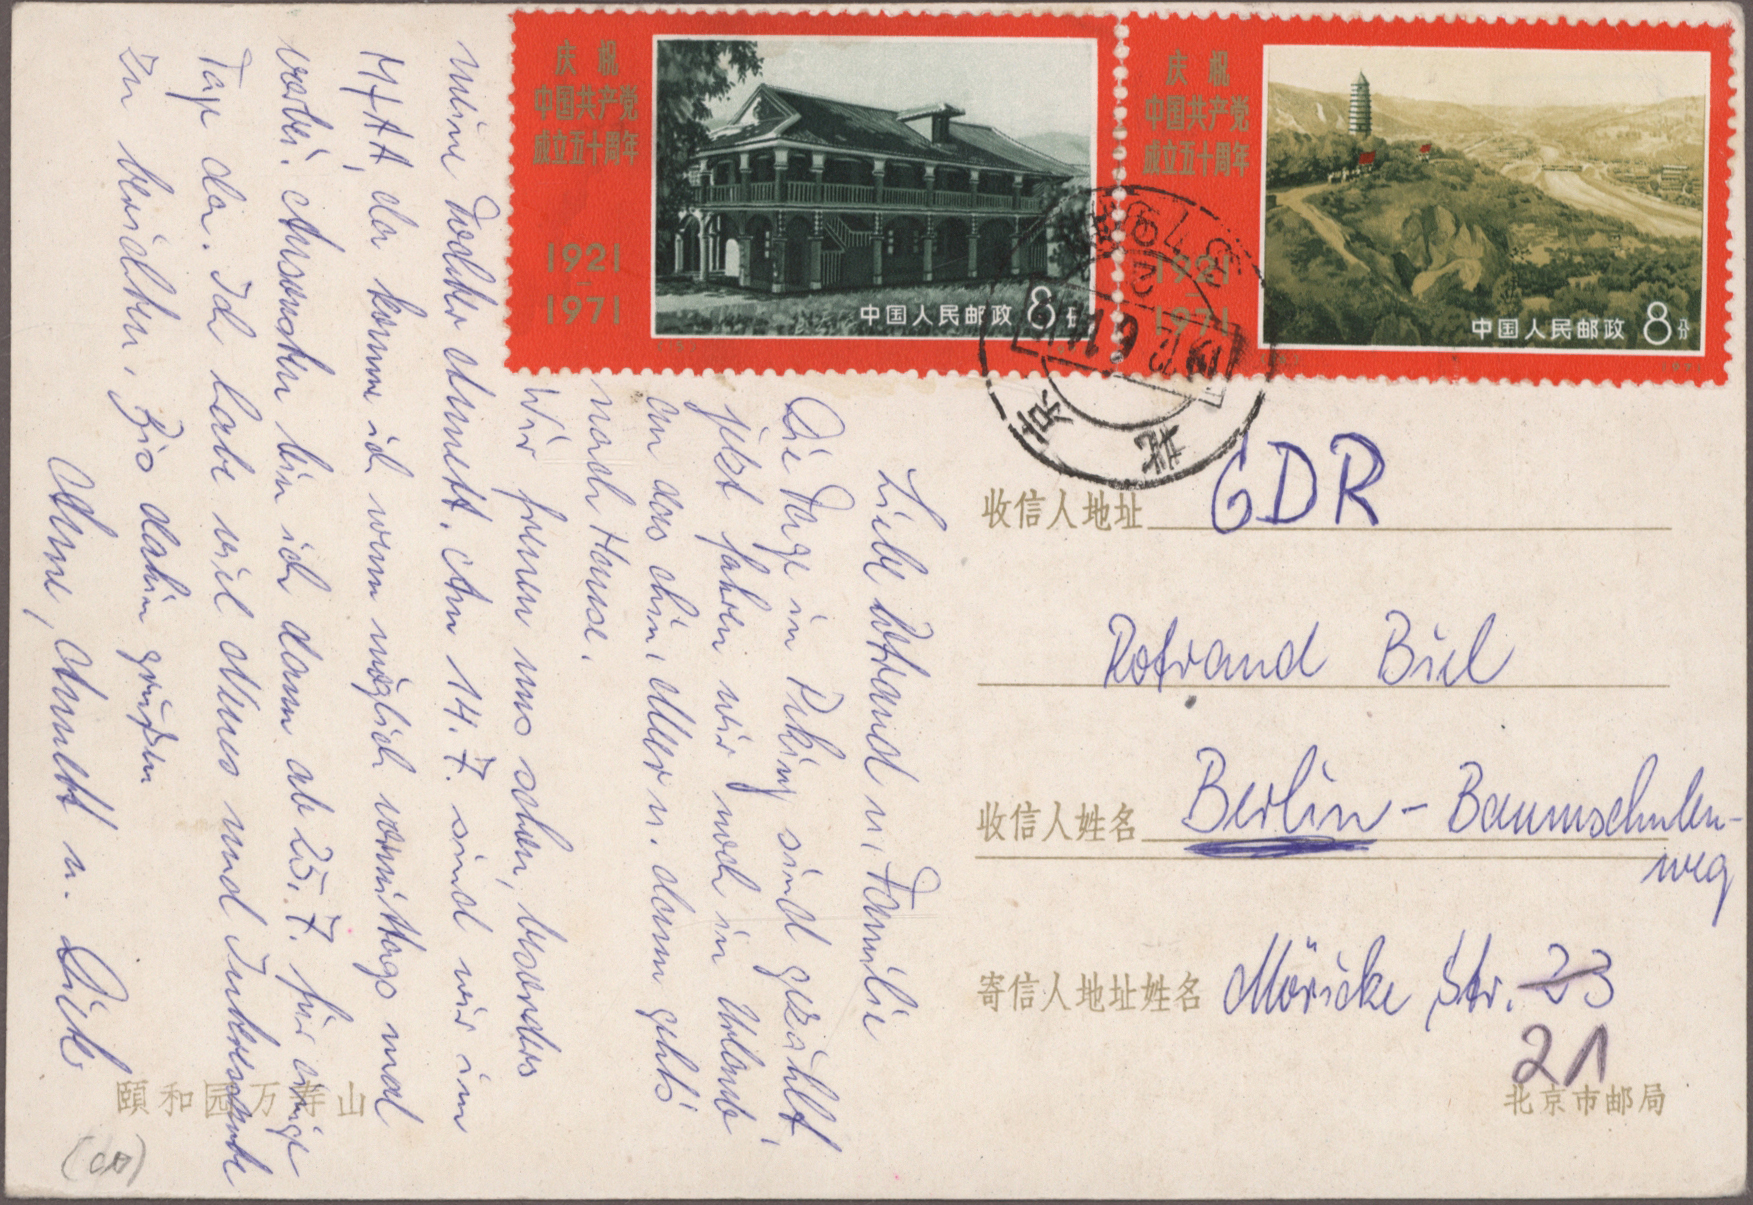 庆祝
中国共产党
成立五十周年
1921
-
1971
中国人民邮政 8分
庆祝
中国共产党
成立五十周年
1921
-
1971
中国人民邮政 8分
北京
Liebe Rotraud u. Familie
Die Tage in Peking sind gezählt,
jetzt fahren wir noch in Urlaub
an das chin. Meer u. dann geht's
nach Hause.
Wir freuen uns schon, besonders
meine Tochter Annett. Am 14.7. sind wir im
da komme ich wenn möglich vormittags mal
vorbei. Ansonsten bin ich dann ab 25.7. für einige
Tage da. Ich habe viel Neues und Interessante
zu berichten. Bis dahin grüßen
Annett u.
收信人地址 GDR
Rotraud Biel
收信人姓名 Berlin - Baumschulen-
weg
寄信人地址姓名 Möricke Str. 23
21
頤和园万寿山
北京市邮局